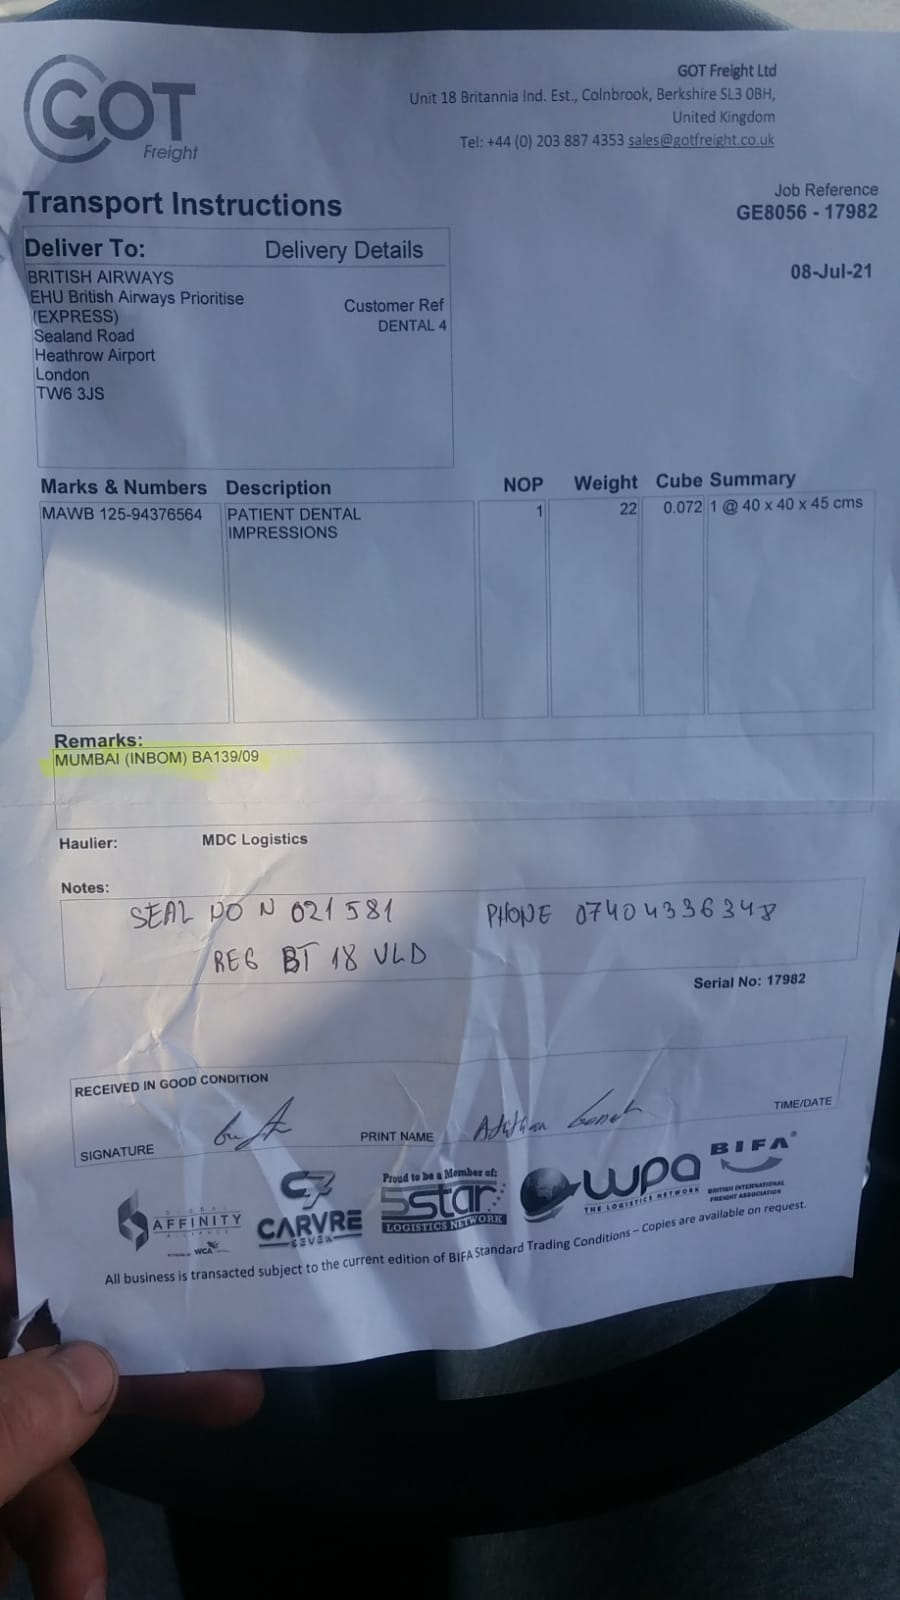 GOT
Freight
GOT Freight Ltd
Unit 18 Britannia Ind. Est., Colnbrook, Berkshire SL3 0BH,
United Kingdom
Tel: +44 (0) 203 887 4353 sales@gotfreight.co.uk
Transport Instructions
Job Reference
GE8056 - 17982
08-Jul-21
Deliver To: Delivery Details
BRITISH AIRWAYS
EHU British Airways Prioritise
(EXPRESS)
Sealand Road
Heathrow Airport
London
TW6 3JS
Customer Ref
DENTAL 4
Marks & Numbers Description NOP Weight Cube Summary
MAWB 125-94376564 PATIENT DENTAL 1 22 0.072 1 @ 40 x 40 x 45 cms
IMPRESSIONS
Remarks:
MUMBAI (INBOM) BA139/09
Haulier: MDC Logistics
Notes:
SEAL NO N 021581 PHONE 07404336348
REG BT 18 VLD
Serial No: 17982
RECEIVED IN GOOD CONDITION
TIME/DATE
SIGNATURE PRINT NAME
GLOBAL
AFFINITY
ALLIANCE
WCA
C7
CARVRE
SEVEN
Proud to be a Member of:
5star
LOGISTICS NETWORK
wpa
THE LOGISTICS NETWORK
BIFA
BRITISH INTERNATIONAL
FREIGHT ASSOCIATION
All business is transacted subject to the current edition of BIFA Standard Trading Conditions – Copies are available on request.